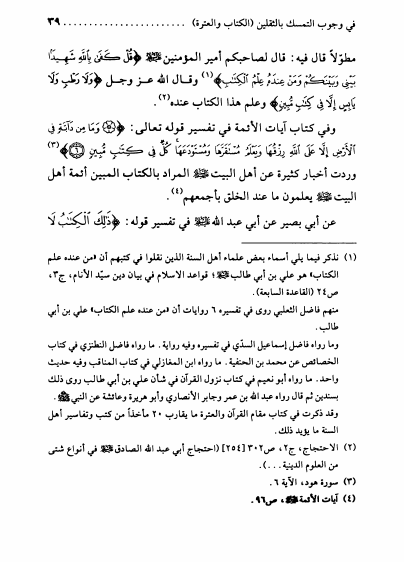 في وجوب التمسك بالثقلين (الكتاب والعترة) ............................ ٣٩
مطوّلاً قال فيه: قال لصاحبكم أمير المؤمنين ﷺ ﴿قُلْ كَفَىٰ بِاللَّهِ شَهِيدًا
بَيْنِي وَبَيْنَكُمْ وَمَنْ عِندَهُ عِلْمُ الْكِتَابِ﴾(١) وقال الله عز وجل ﴿وَلَا رَطْبٍ وَلَا
يَابِسٍ إِلَّا فِي كِتَابٍ مُبِينٍ﴾ وعلم هذا الكتاب عنده(٢).
وفي كتاب آيات الأئمة في تفسير قوله تعالى: ﴿۞ وَمَا مِن دَابَّةٍ فِي
الْأَرْضِ إِلَّا عَلَى اللَّهِ رِزْقُهَا وَيَعْلَمُ مُسْتَقَرَّهَا وَمُسْتَوْدَعَهَا كُلٌّ فِي كِتَابٍ مُبِينٍ ٦﴾(٣)
وردت أخبار كثيرة عن أهل البيت ﷺ المراد بالكتاب المبين أئمة أهل
البيت ﷺ يعلمون ما عند الخلق بأجمعهم(٤).
عن أبي بصير عن أبي عبد الله ﷺ في تفسير قوله: ﴿ذَٰلِكَ الْكِتَابُ لَا
(١) نذكر فيما يلي أسماء بعض علماء أهل السنة الذين نقلوا في كتبهم أن «من عنده علم
الكتاب» هو علي بن أبي طالب ﷺ؛ قواعد الاسلام في بيان دين سيّد الأنام، ج٣،
ص٢٤ (القاعدة السابعة).
منهم فاضل الثعلبي روى في تفسيره ٦ روايات أن «من عنده علم الكتاب» علي بن أبي
طالب.
وما رواه فاضل إسماعيل السدّي في تفسيره وفيه رواية. ما رواه فاضل النطنزي في كتاب
الخصائص عن محمد بن الحنفية. ما رواه ابن المغازلي في كتاب المناقب وفيه حديث
واحد. ما رواه أبو نعيم في كتاب نزول القرآن في شأن علي بن أبي طالب روى ذلك
بسندين ثم قال رواه عبد الله بن عمر وجابر الأنصاري وأبو هريرة وعائشة عن النبي ﷺ.
وقد ذكرت في كتاب مقام القرآن والعترة ما يقارب ٢٠ مأخذاً من كتب وتفاسير أهل
السنة ما يؤيد ذلك.
(٢) الاحتجاج، ج٢، ص٣٠٢ [٢٥٤] (احتجاج أبي عبد الله الصادق ﷺ في أنواع شتى
من العلوم الدينية ...).
(٣) سورة هود، الآية ٦.
(٤) آيات الأئمة ﷺ، ص٩٦.